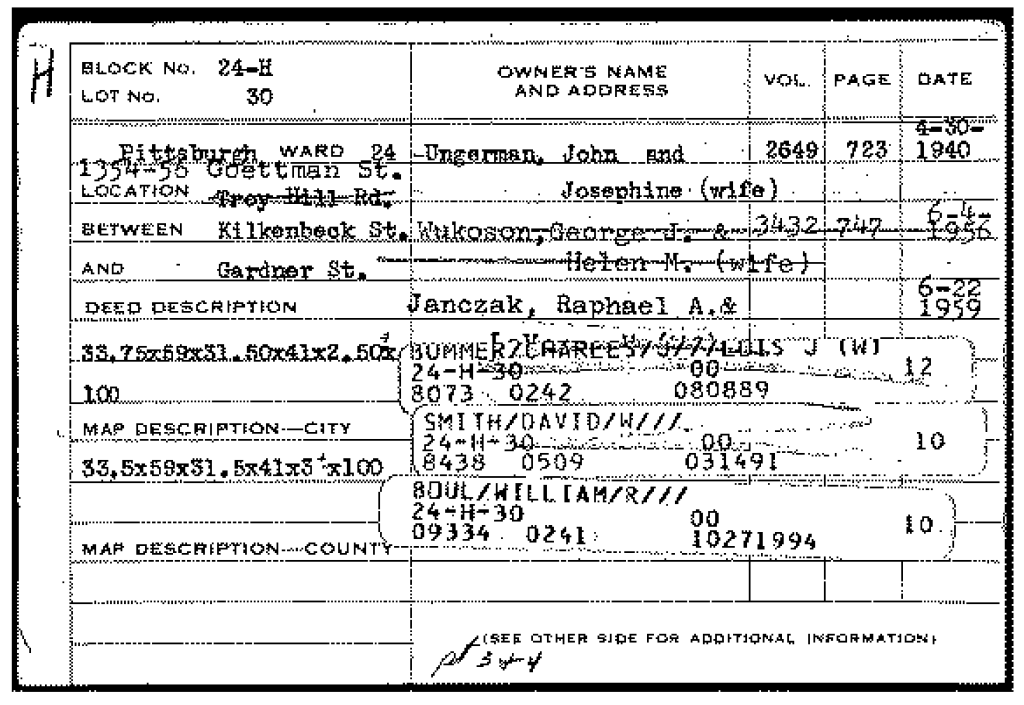 H
BLOCK No. 24-H
LOT No. 30
OWNER'S NAME AND ADDRESS
VOL.
PAGE
DATE
Pittsburgh WARD 24
1354-56 Goettman St.
LOCATION Troy Hill Rd.
BETWEEN Kilkenbeck St.
AND Gardner St.
DEED DESCRIPTION
33.75x59x31.50x41x2.50x
100
MAP DESCRIPTION—CITY
33.5x59x31.5x41x3+x100
MAP DESCRIPTION—COUNTY
Ungerman, John and 2649 723 4-30-1940
Josephine (wife)
Wukoson, George J. & 3432 747 6-4-1956
Helen M. (wife)
Janczak, Raphael A.& 6-22 1959
BOMMER/CHARLES/J///LOIS J (W)
24-H-30 00 12
8073 0242 080889
SMITH/DAVID/W///
24-H-30 00 10
8438 0509 031491
BOUL/WILLIAM/R///
24-H-30 00 10
09334 0241 10271994
(SEE OTHER SIDE FOR ADDITIONAL INFORMATION)